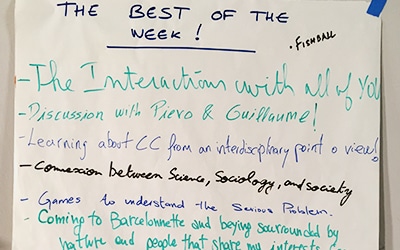 THE BEST OF THE
WEEK!
. FISHBALL
- The Interactions with all of You
- Discussion with Piero & Guillaume!
- Learning about CC from an interdisciplinary point o view!
- Connexion between Science, Sociology, and society
- Games to understand the Serious Problem.
- Coming to Barcelonnette and beying sourrounded by
nature and people that share my interests